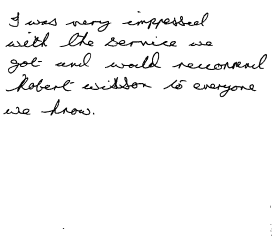 I was very impressed
with the service we
got and would recommend
Robert wilson to everyone
we know.